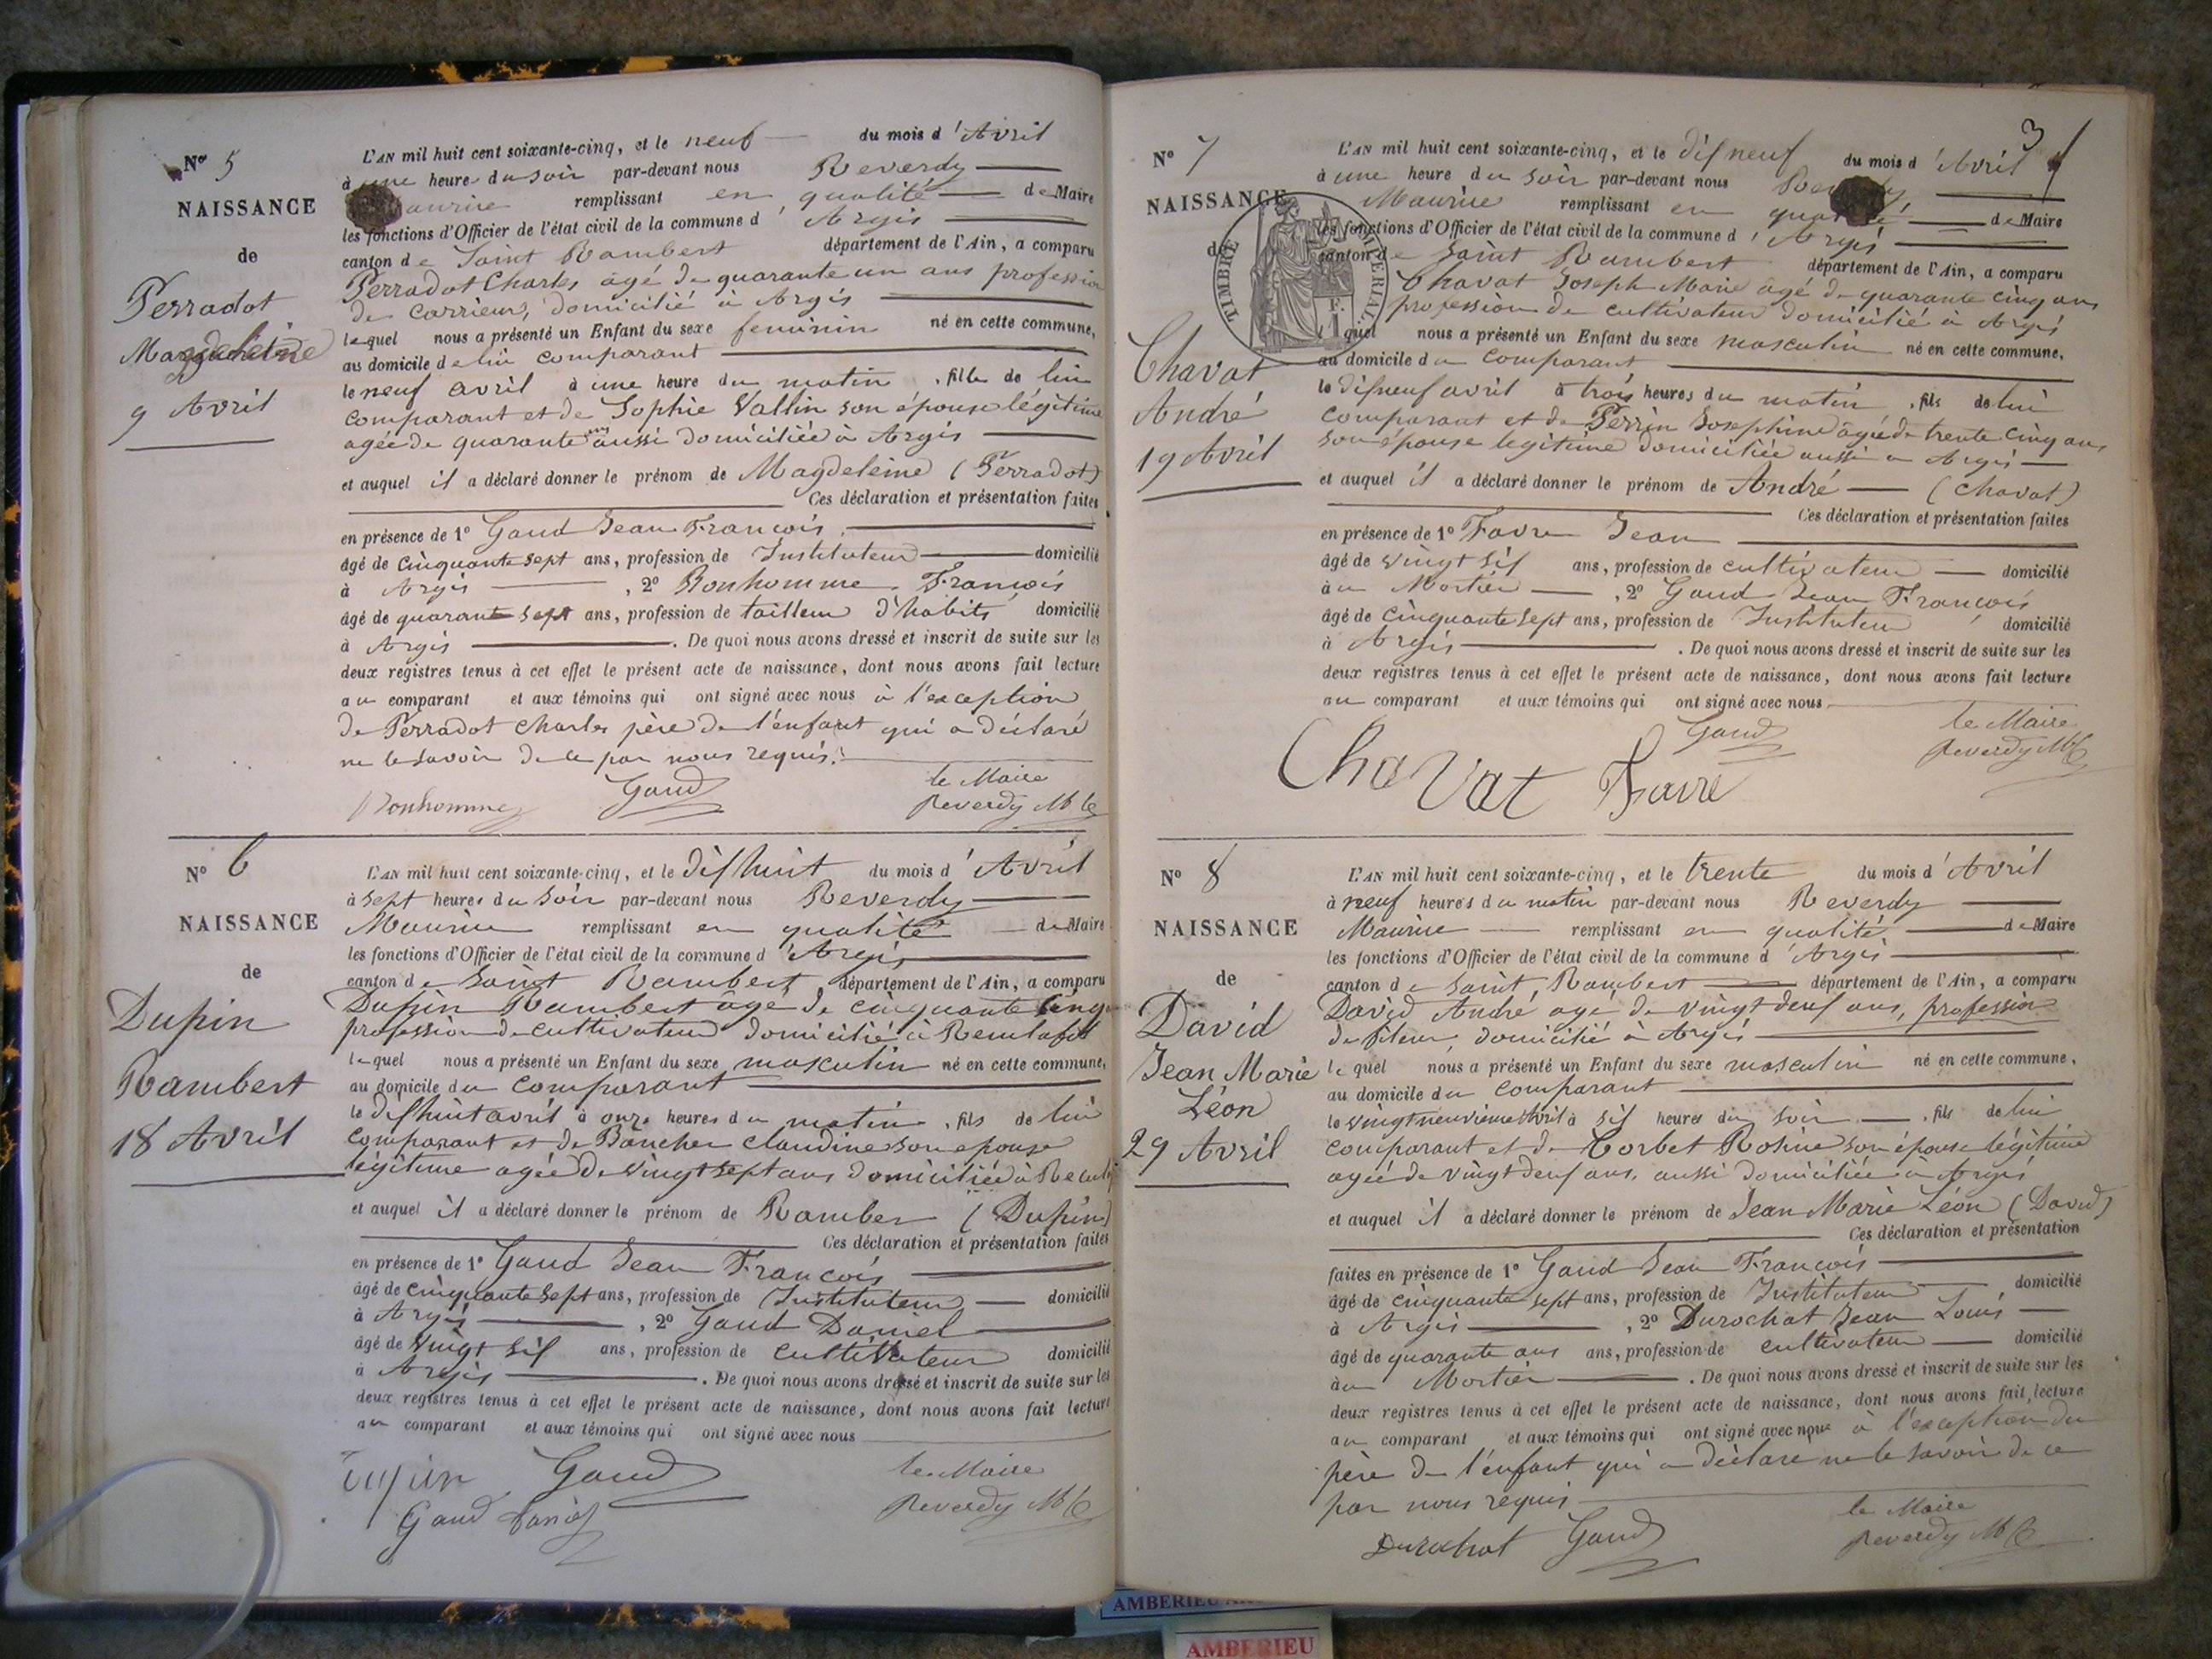 N° 5
NAISSANCE
de
Perradot
Magdeleine
9 Avril
L'AN mil huit cent soixante-cinq, et le neuf du mois d'Avril
à une heure du soir par-devant nous Reverdy
Maurice remplissant en qualité de Maire
les fonctions d'Officier de l'état civil de la commune d'Argis
canton de Saint Rambert département de l'Ain, a comparu
Perradot Charles âgé de quarante un ans profession
de carrieur, domicilié à Argis
lequel nous a présenté un Enfant du sexe feminin né en cette commune,
au domicile de lui comparant
le neuf avril à une heure du matin, fille de lui
comparant et de Sophie Vallin son épouse légitime
agée de quarante ans aussi domiciliée à Argis
et auquel il a déclaré donner le prénom de Magdeleine (Perradot)
Ces déclaration et présentation faites
en présence de 1° Gaud Jean François
âgé de cinquante sept ans, profession de Instituteur domicilié
à Argis, 2° Bonhomme François
âgé de quarante sept ans, profession de tailleur d'habits domicilié
à Argis. De quoi nous avons dressé et inscrit de suite sur les
deux registres tenus à cet effet le présent acte de naissance, dont nous avons fait lecture
au comparant et aux témoins qui ont signé avec nous à l'exception
de Perradot Charles père de l'enfant qui a déclaré
ne le savoir de ce par nous requis.
Bonhomme Gaud le Maire
Reverdy Mce
N° 6
NAISSANCE
de
Dupin
Rambert
18 Avril
L'AN mil huit cent soixante-cinq, et le dishuit du mois d'Avril
à sept heures du soir par-devant nous Reverdy
Maurice remplissant en qualité de Maire
les fonctions d'Officier de l'état civil de la commune d'Argis
canton de Saint Rambert département de l'Ain, a comparu
Dupin Rambert âgé de cinquante cinq
profession de cultivateur domicilié à
lequel nous a présenté un Enfant du sexe masculin né en cette commune,
au domicile du comparant
le dishuit avril à onze heures du matin, fils de lui
comparant et de Claudine son epouse
légitime agée de vingt sept ans domiciliée à
et auquel il a déclaré donner le prénom de Ramber (Dupin)
Ces déclaration et présentation faites
en présence de 1° Gaud Jean François
âgé de cinquante sept ans, profession de Instituteur domicilié
à Argis, 2° Gaud Daniel
âgé de vingt sis ans, profession de cultivateur domicilié
à Argis. De quoi nous avons dressé et inscrit de suite sur les
deux registres tenus à cet effet le présent acte de naissance, dont nous avons fait lecture
au comparant et aux témoins qui ont signé avec nous
Dupin Gaud le Maire
Gaud Daniel Reverdy Mce
3
N° 7
NAISSANCE
de
Chavat
André
19 Avril
TIMBRE IMPERIAL
L'AN mil huit cent soixante-cinq, et le disneuf du mois d'Avril
à une heure du soir par-devant nous Reverdy
Maurice remplissant en qualité de Maire
les fonctions d'Officier de l'état civil de la commune d'Argis
canton de Saint Rambert département de l'Ain, a comparu
Chavat Joseph Marie âgé de quarante cinq ans
profession de cultivateur domicilié à Argis
lequel nous a présenté un Enfant du sexe masculin né en cette commune,
au domicile du comparant
le disneuf avril à trois heures du matin, fils de lui
comparant et de Perrin Josephine âgée de trente cinq ans
son épouse legitime domiciliée aussi à Argis
et auquel il a déclaré donner le prénom de André (Chavat)
Ces déclaration et présentation faites
en présence de 1° Favre Jean
âgé de vingt sis ans, profession de cultivateur domicilié
au Mortier, 2° Gaud Jean François
âgé de cinquante sept ans, profession de Instituteur domicilié
à Argis. De quoi nous avons dressé et inscrit de suite sur les
deux registres tenus à cet effet le présent acte de naissance, dont nous avons fait lecture
au comparant et aux témoins qui ont signé avec nous
Gaud le Maire
Chavat Favre Reverdy Mce
N° 8
NAISSANCE
de
David
Jean Marie
Léon
29 Avril
L'AN mil huit cent soixante-cinq, et le trente du mois d'Avril
à neuf heures du matin par-devant nous Reverdy
Maurice remplissant en qualité de Maire
les fonctions d'Officier de l'état civil de la commune d'Argis
canton de Saint Rambert département de l'Ain, a comparu
David André agé de vingt deus ans, profession
de fileur, domicilié à Argis
lequel nous a présenté un Enfant du sexe masculin né en cette commune,
au domicile du comparant
le vingtneuvième Avril à sis heures du soir, fils de lui
comparant et de Corbet Rosine son épouse légitime
agée de vingt deus ans, aussi domiciliée à Argis
et auquel il a déclaré donner le prénom de Jean Marie Léon (David)
Ces déclaration et présentation
faites en présence de 1° Gaud Jean François
âgé de cinquante sept ans, profession de Instituteur domicilié
à Argis, 2° Durochat Jean Louis
âgé de quarante ans ans, profession de cultivateur domicilié
au Mortier. De quoi nous avons dressé et inscrit de suite sur les
deux registres tenus à cet effet le présent acte de naissance, dont nous avons fait lecture
au comparant et aux témoins qui ont signé avec nous à l'exception du
père de l'enfant qui a déclaré ne le savoir de ce
par nous requis
Durochat Gaud le Maire
Reverdy Mce
AMBERIEU
AMBERIEU